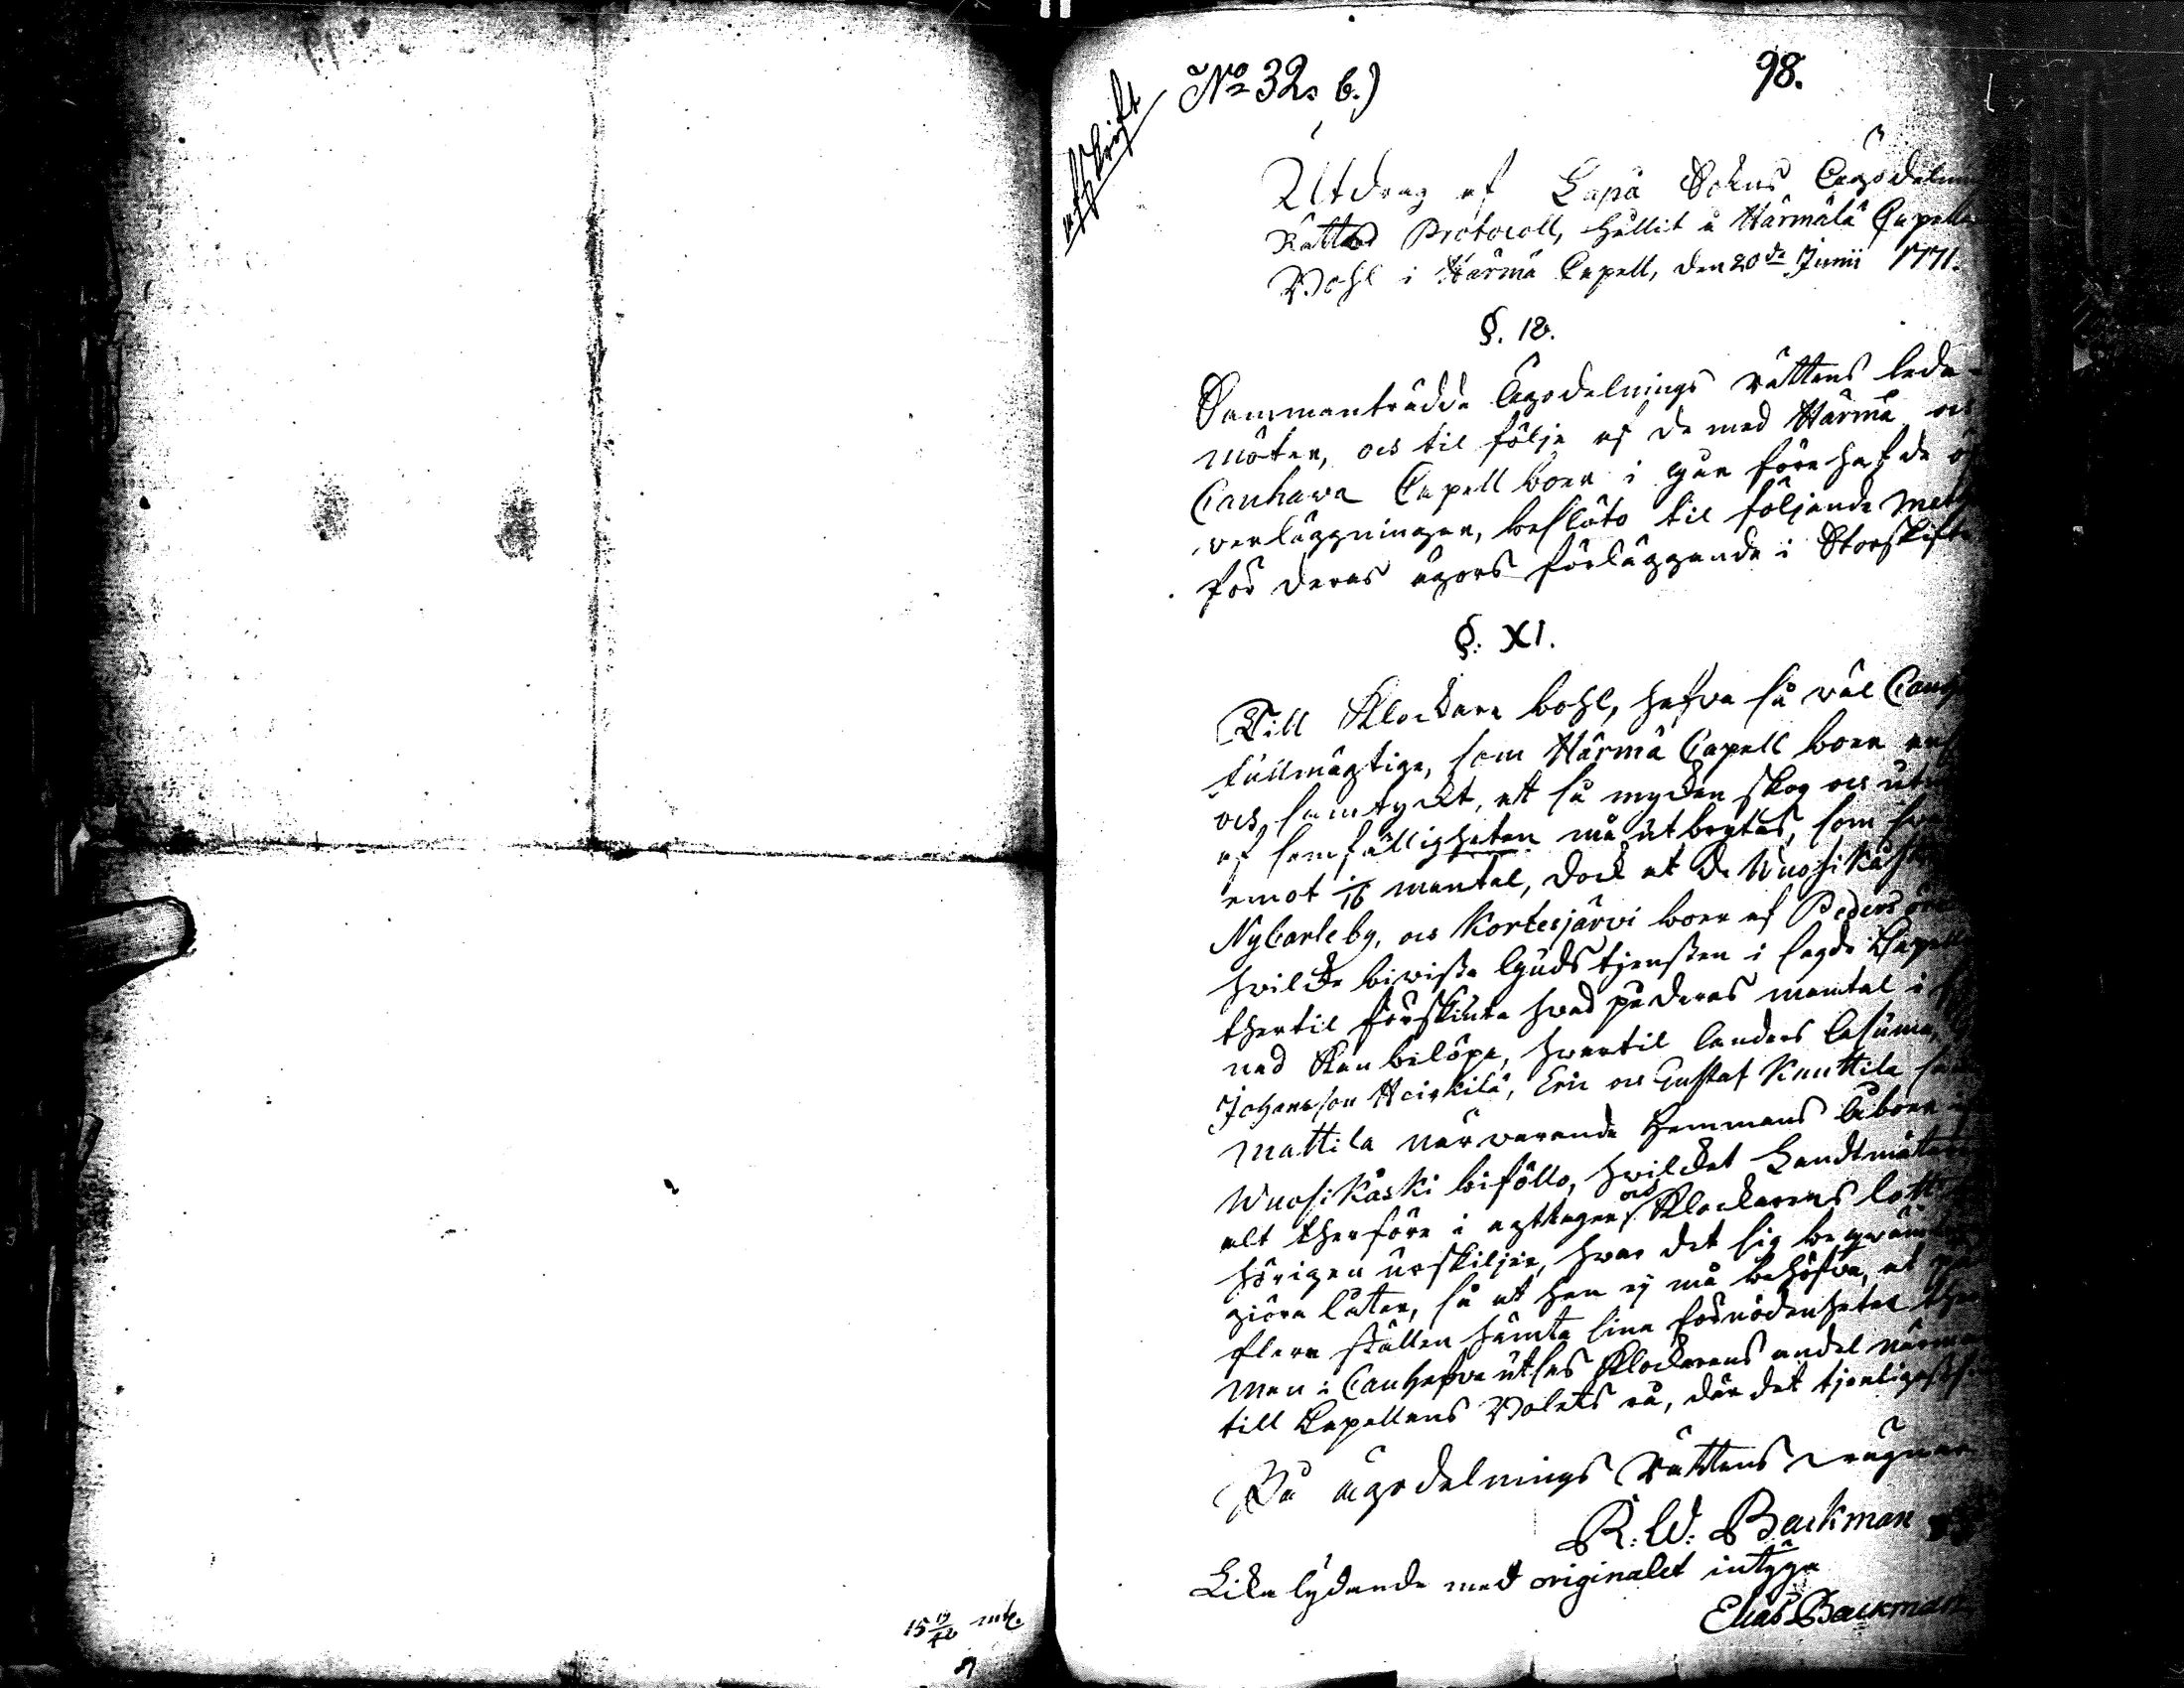 No 32. b.)
98.
afskrift
Utdrag af Lapå Sokns Ägodelnings
Rättes Protocoll, hållit å Härmälä Capells
Bohl i Härmä Capell, den 20de Junii 1771.
§. 18.
Sammanträdde Ägodelnings rättens leda-
möter, och til följe af de med Härmä och
Cauhava Capell boer i går förehafde öf-
verläggningar, beslöto til följande
för deras ägors förläggande i Storskifte
§. XI.
Till Klockare bohl, hafva så väl Cauh
fullmägtige, som Härmä Capell boer
och samtyckt, att så mycken skog och
af samfälligheten må utbrytas, som
emot 1/16 mantal, dock at de Wuoskoski
Nycarleby, och Kortesjärvi boer af Pedersöre
hvilcka bivista Gudstjensten i sagde Capell
thertil förskiuta hvad på deras mantal i
nad kan belöpa, hvartil Anders Casuma,
Johansson Heickilä, Eric och Gustaf Knuttila
Mattila närvarande hemmans åboer
Wuoskoski biföllo, hvilcket Landtmätaren
alt therföre i agttager, och Klockarens lott
hörigen urskiljer, hvar det sig beqvämligast
giöra låter, så at han ej må behöfva, at på
flera ställen hämta sina förnödenheter ther
men i Cauhava utses Klockarens andel närmast
till Capellans Bolets rå, där det tjenligast
På ägodelnings Rättens vägnar
R: W: Backman
Lika lydande med originalet intyga
Elias Backman
15 19/48 mtl.